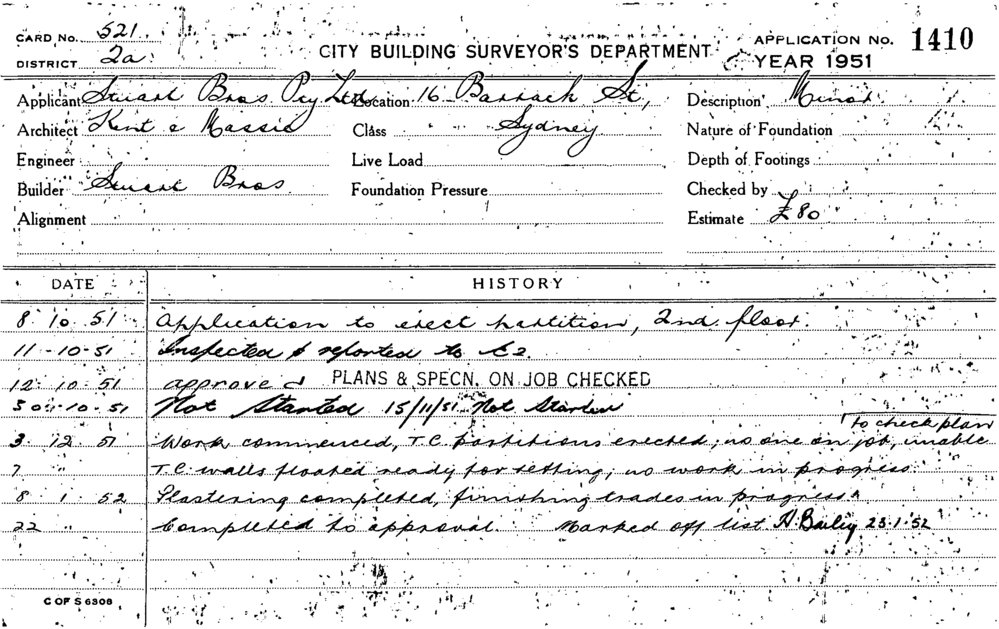 CARD No. 521
DISTRICT 2a
CITY BUILDING SURVEYOR'S DEPARTMENT
APPLICATION No. 1410
YEAR 1951
Applicant Stuart Bros Pty Ltd Location 16 Barrack St, Description Minor
Architect Kent & Massie Class Sydney Nature of Foundation
Engineer Live Load Depth of Footings
Builder Stuart Bros. Foundation Pressure Checked by
Alignment Estimate £80
DATE HISTORY
8 10 51 Application to erect partition, 2nd floor.
11-10-51 Inspected & reported to
12 10 51 approved PLANS & SPECN. ON JOB CHECKED
30-10-51 Not Started 15/11/51 Not Started
to check plan
3 12 51 Work commenced, T.C. partitions erected; no one on job, unable
7 " T.C. walls floated ready for setting; no work in progress.
8 1 52 Plastering completed, finishing trades in progress
22 " Completed to approval. Marked off list H. Bailey 23.1.52
C OF S 6308